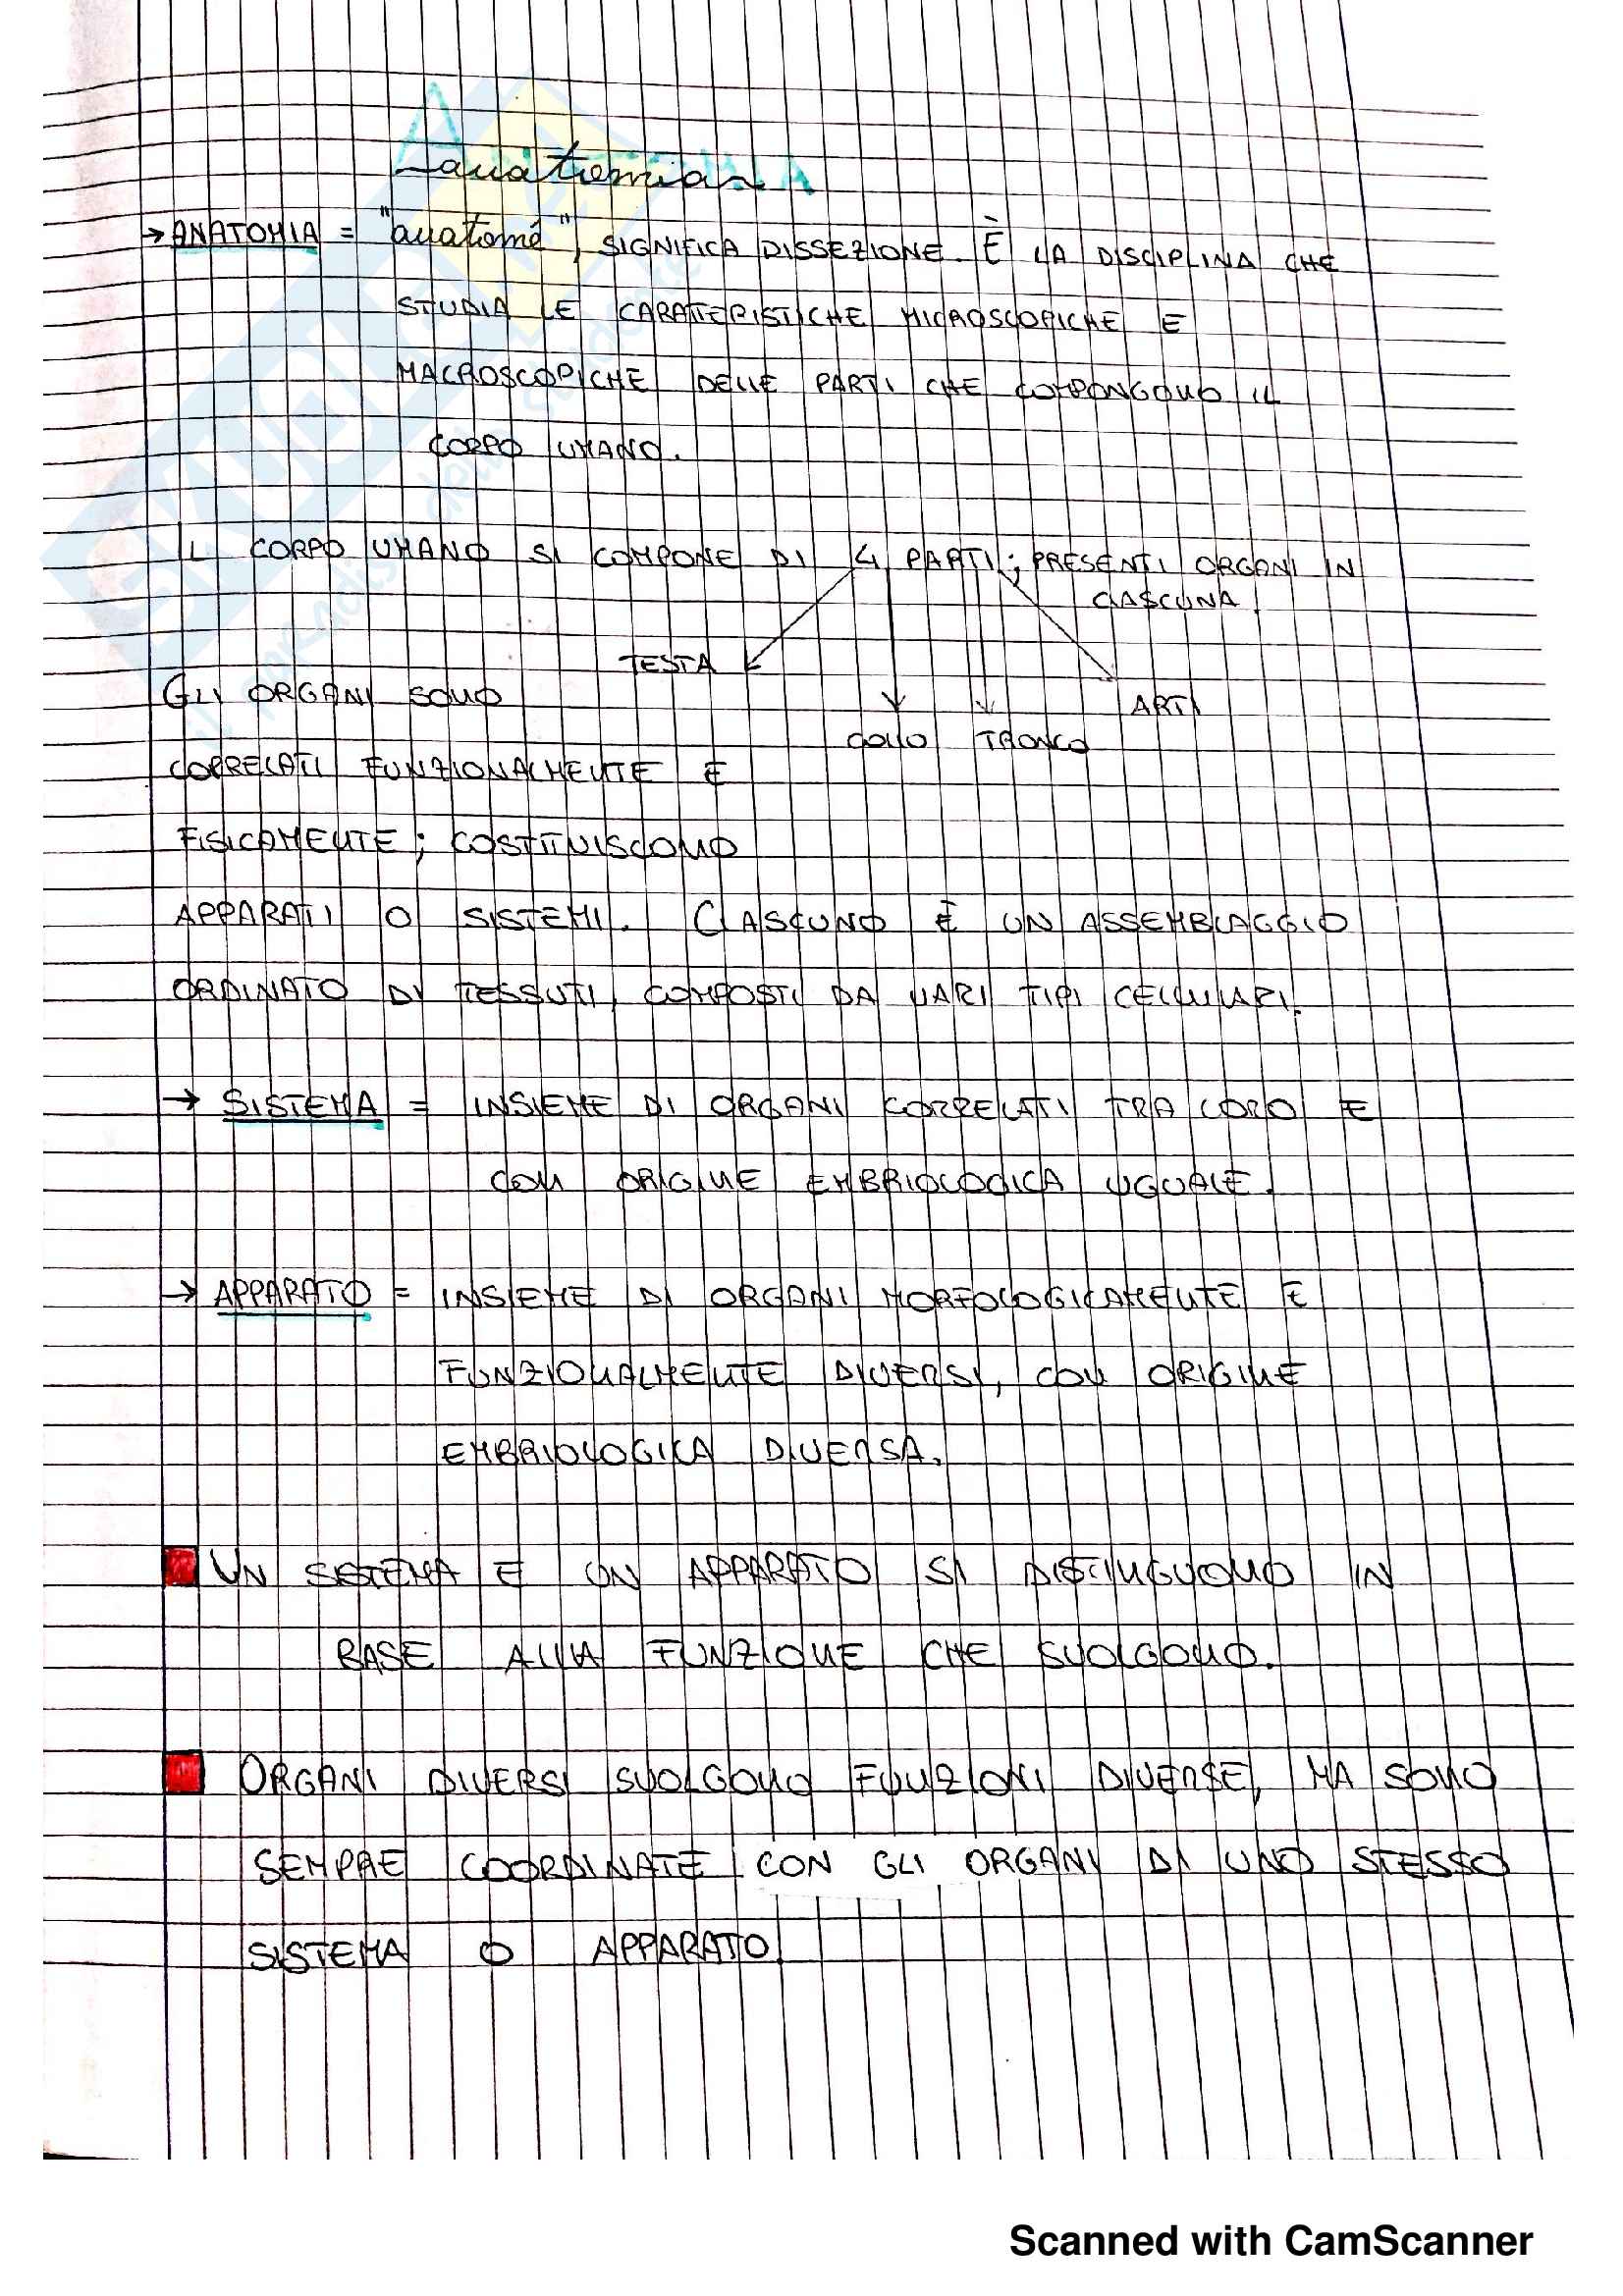 ANATOMIA
anatomia
→ ANATOMIA = "anatomê", SIGNIFICA DISSEZIONE. È LA DISCIPLINA CHE
STUDIA LE CARATTERISTICHE MICROSCOPICHE E
MACROSCOPICHE DELLE PARTI CHE COMPONGONO IL
CORPO UMANO.
IL CORPO UMANO SI COMPONE DI 4 PARTI; PRESENTI ORGANI IN
CIASCUNA.
TESTA
COLLO TRONCO ARTI
GLI ORGANI SONO
CORRELATI FUNZIONALMENTE E
FISICAMENTE; COSTITUISCONO
APPARATI O SISTEMI. CIASCUNO È UN ASSEMBLAGGIO
ORDINATO DI TESSUTI, COMPOSTI DA VARI TIPI CELLULARI.
→ SISTEMA = INSIEME DI ORGANI CORRELATI TRA LORO E
CON ORIGINE EMBRIOLOGICA UGUALE.
→ APPARATO = INSIEME DI ORGANI MORFOLOGICAMENTE E
FUNZIONALMENTE DIVERSI, CON ORIGINE
EMBRIOLOGICA DIVERSA.
UN SISTEMA E UN APPARATO SI DISTINGUONO IN
BASE ALLA FUNZIONE CHE SVOLGONO.
ORGANI DIVERSI SVOLGONO FUNZIONI DIVERSE, MA SONO
SEMPRE COORDINATE CON GLI ORGANI DI UNO STESSO
SISTEMA O APPARATO.
Scanned with CamScanner